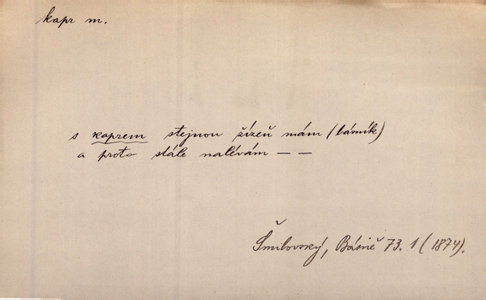 kapr m.
s kaprem stejnou žízeň mám (básník)
a proto stále nalévám — —
Šmilovský, Básně 73. 1 (1874).